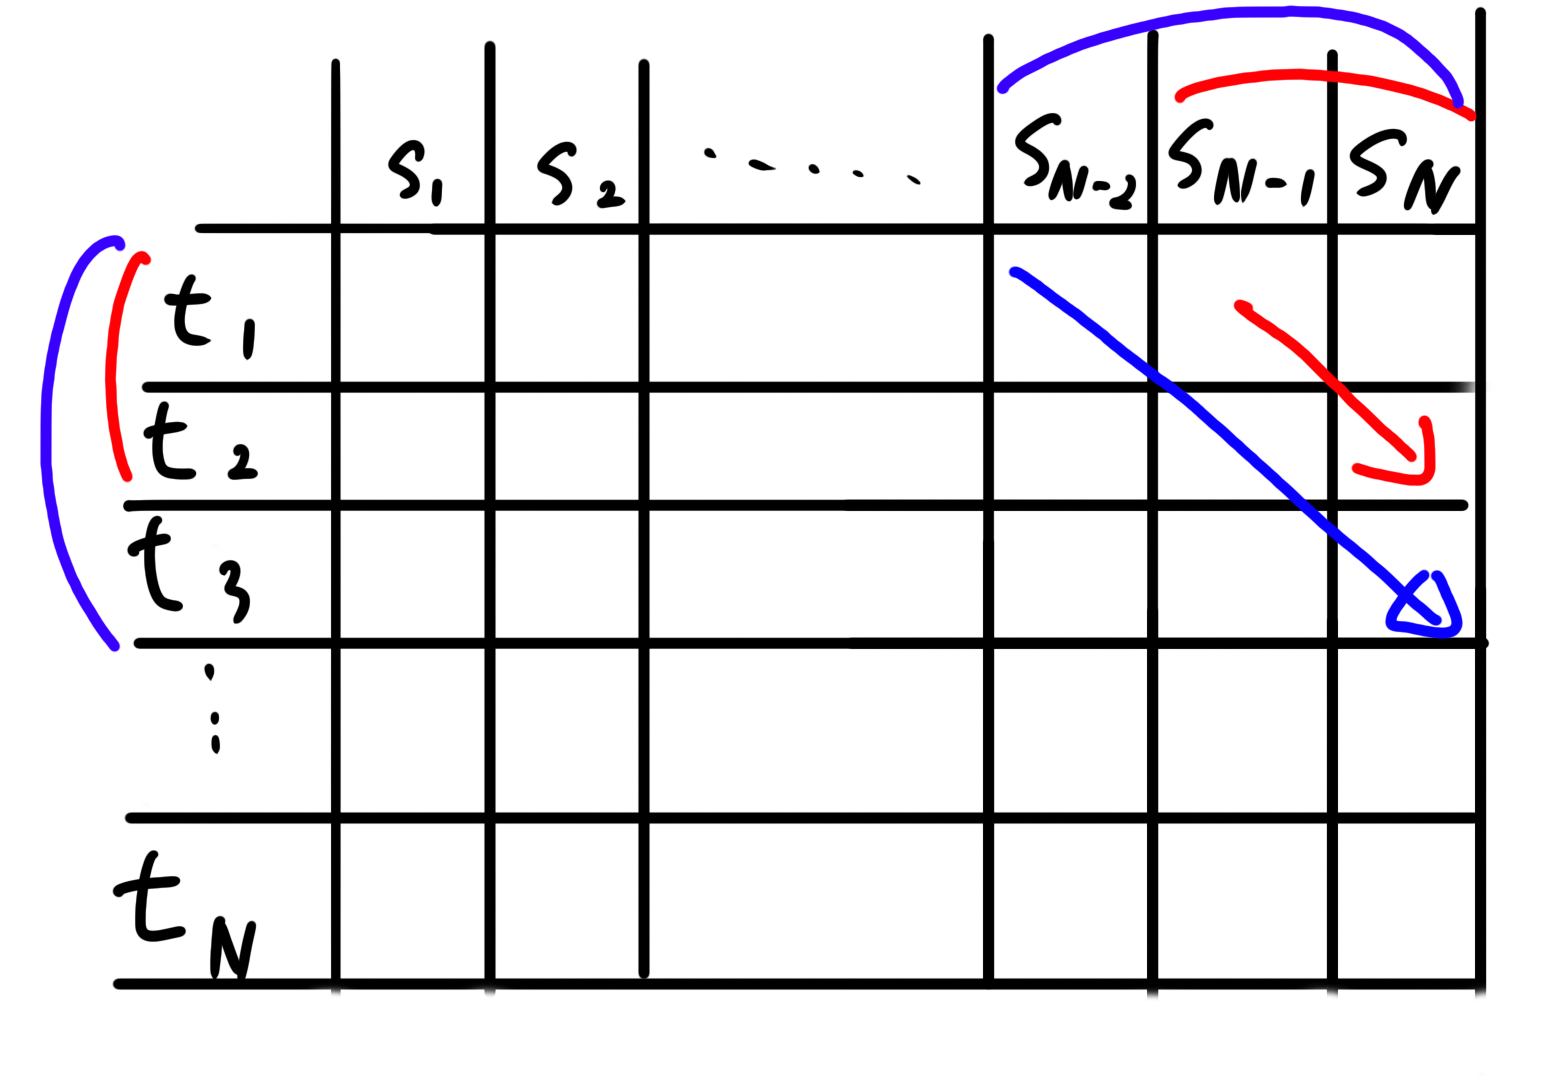 S₁ S₂ ..... S_N-2 S_N-1 S_N
t₁
t₂
t₃
⋮
t_N